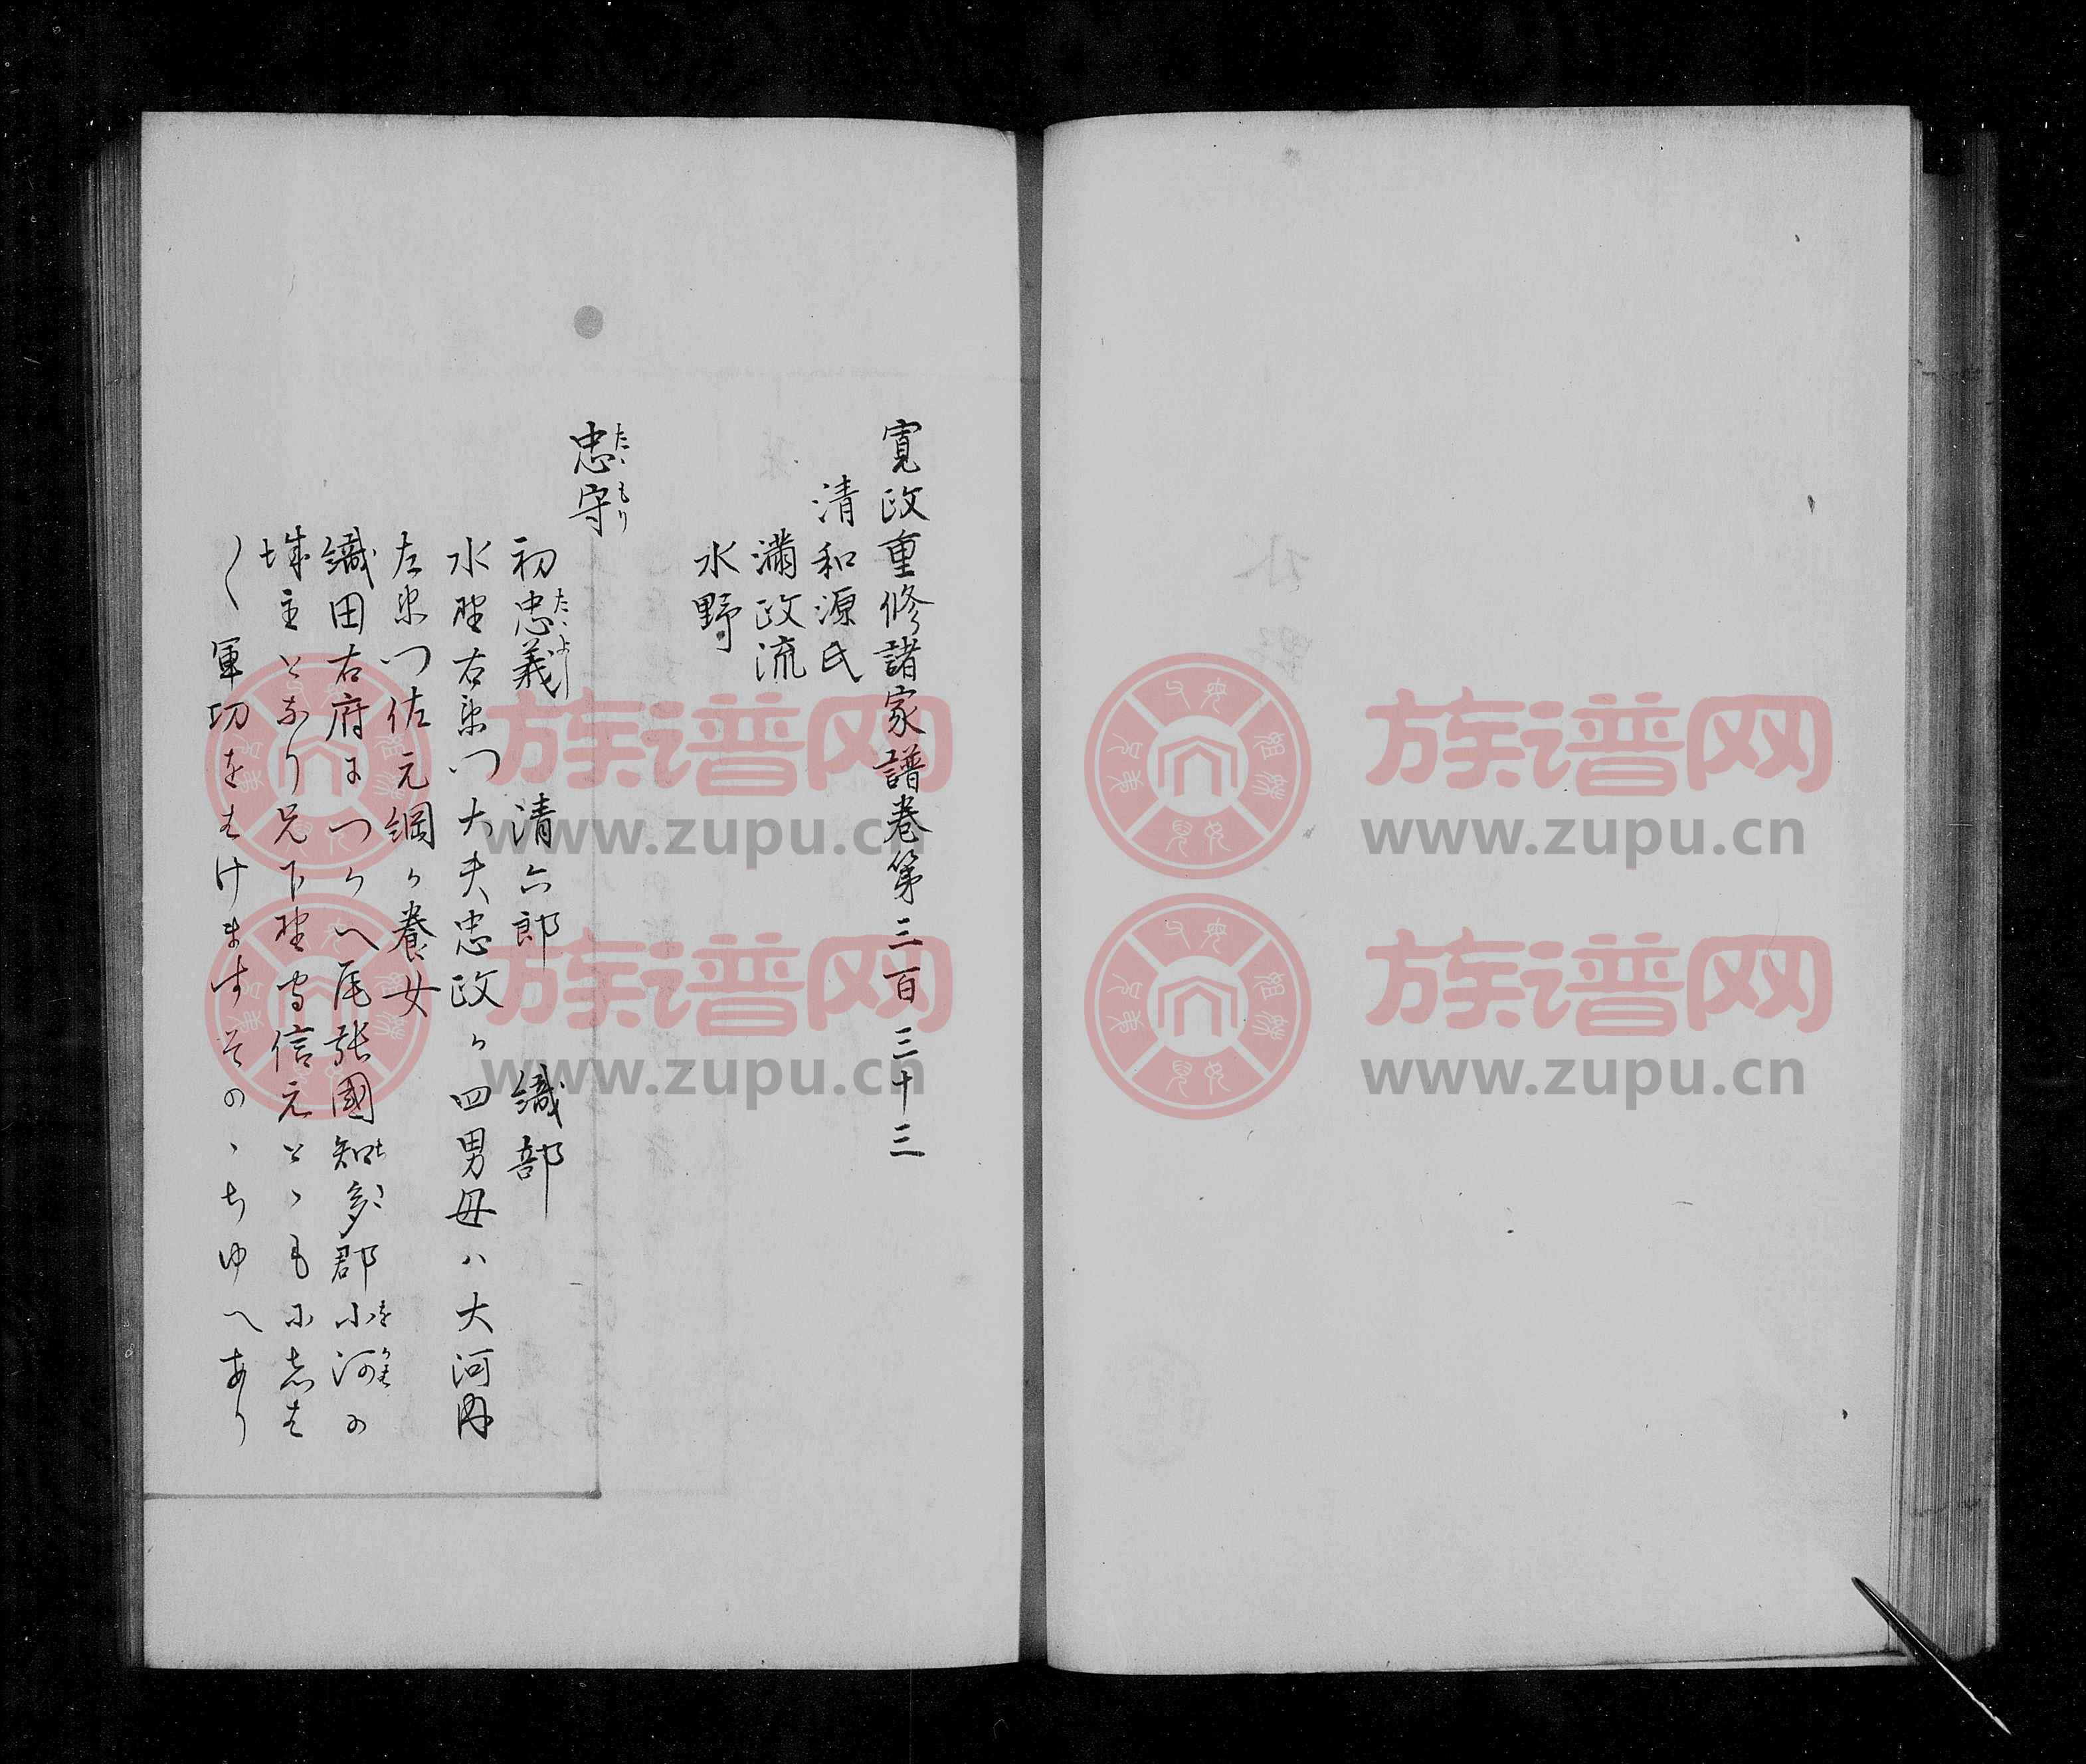 寛政重修諸家譜巻第三百三十三
清和源氏
満政流
水野
忠守
たゝもり
初忠義 清六郎 織部
たゝよし
水野右衛門大夫忠政か四男母ハ大河内
左衛門佐元綱か養女
織田右府につかへ尾張國知多郡小河の
ち た を かは
城主となり兄下野守信元とゝもにしは
〱軍功をはけますそのゝちゆへあり
族谱网
www.zupu.cn
族谱网
www.zupu.cn
族谱网
www.zupu.cn
族谱网
www.zupu.cn